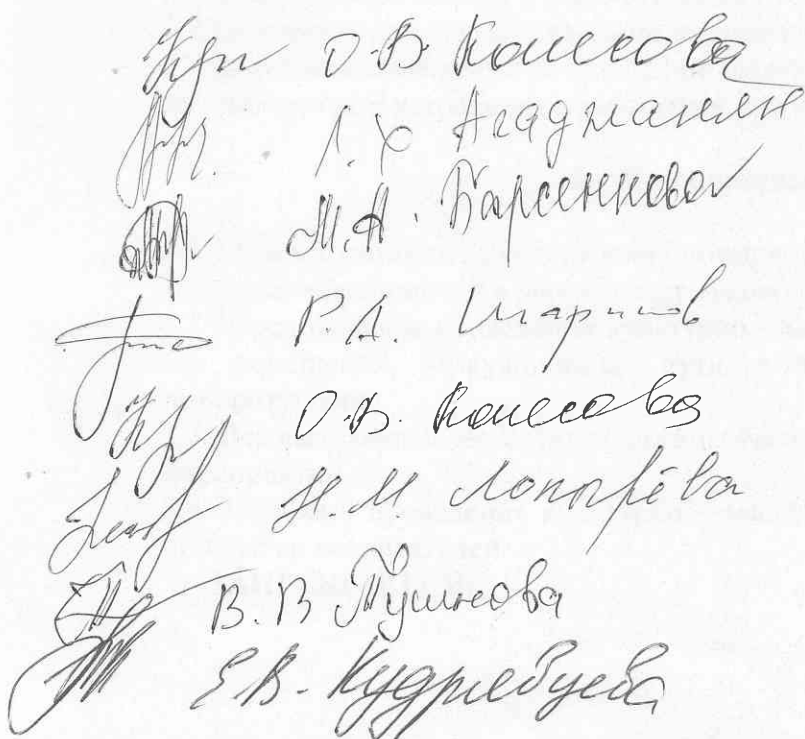 О.В. Колесова
Л.Х Агаджанян
М.А. Барсенкова
Р.А. Шарипов
О.В. Колесова
Н М Лопырёва
В.В
Е В. Кудрявцева